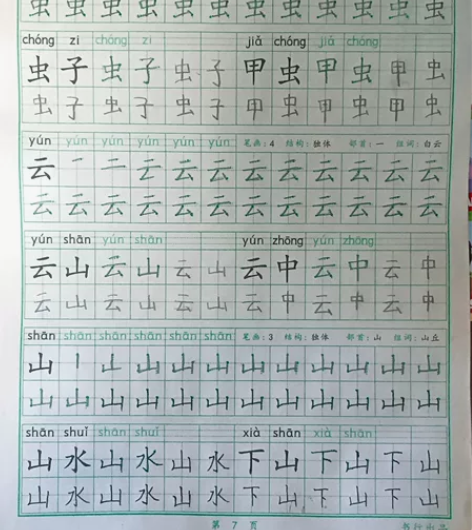 虫 虫 虫 虫 虫 虫 虫 虫 虫 虫 虫 虫
chóng zi chóng zi jiǎ chóng jiǎ chóng
虫 子 虫 子 虫 子 甲 虫 甲 虫 甲 虫
虫 子 虫 子 虫 子 甲 虫 甲 虫 甲 虫
yún yún yún yún yún yún 笔画:4 结构:独体 部首:一 组词:白云
云 一 二 云 云 云 云 云 云 云 云 云
云 云 云 云 云 云 云 云 云 云 云 云
yún shān yún shān yún zhōng yún zhōng
云 山 云 山 云 山 云 中 云 中 云 中
云 山 云 山 云 山 云 中 云 中 云 中
shān shān shān shān shān shān 笔画:3 结构:独体 部首:山 组词:山丘
山 丨 山 山 山 山 山 山 山 山 山
山 山 山 山 山 山 山 山 山 山 山 山
shān shuǐ shān shuǐ xià shān xià shān
山 水 山 水 山 水 下 山 下 山 下 山
山 水 山 水 山 水 下 山 下 山 下 山
第 7 页